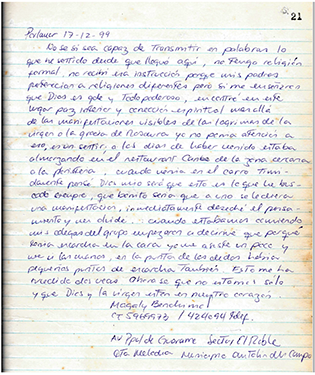 21
Porlamar 17-12-99
No se si sea capaz de transmitir en palabras lo
que he sentido desde que llegué aquí, no tengo religión
formal, no recibí esa instrucción porque mis padres
pertenecían a religiones diferentes pero si me enseñaron
que Dios es Todopoderoso, encontre en este
lugar paz interior y conección espiritual mas alla
de las manifestaciones visibles de las lagrimas de la
virgen o la no ponia atención a
eso, era sentir, a los dias de haber venido estaba
almorzando en el restaurant de la zona cercana
a la cuando venia en el carro
pensé Dios mio será que esto es lo que he bus-
cado siempre, que bonito seria que a uno
una manifestación, inmediatamente deseché el pensa
miento y me olvide... cuando estabamos comiendo
mis colegas del grupo empezaron a decirme que porqué
tenia escarcha en la cara yo me asusté un poco y
me vi las manos, en la punta de los dedos habia
pequeños puntos de escarcha tambien. Esto me ha
sucedido dos veces. Ahora se que no estamos solos
y que Dios y la virgen estan en nuestro corazón
Magaly
Av Ppal de Sector El Roble
Qta Melodia Municipio Antolin del Campo